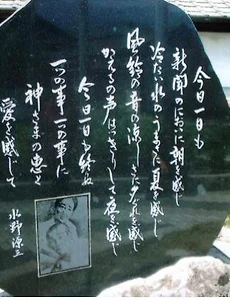 今日一日も
新聞のにおいに朝を感じ
冷たい水のうまさに夏を感じ
風鈴の音の涼しさに夕ぐれを感じ
かえるの声はっきりして夜を感じ
今日一日も終りぬ
一つの事一つの事に
神さまの恵と
愛を感じて
水野源三